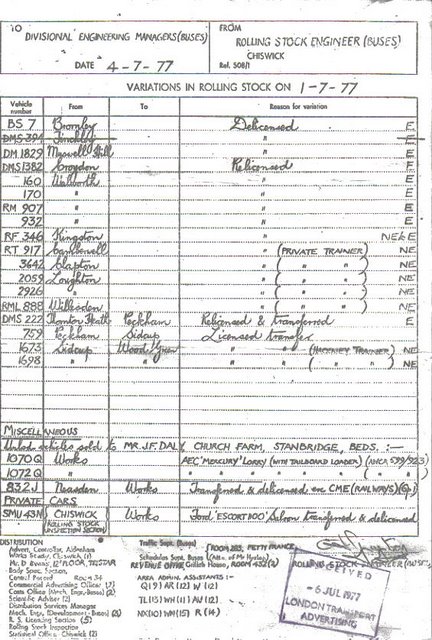 TO
DIVISIONAL ENGINEERING MANAGERS (BUSES)
DATE 4-7-77
FROM
ROLLING STOCK ENGINEER (BUSES)
CHISWICK
Ref. 508/1
VARIATIONS IN ROLLING STOCK ON 1-7-77
Vehicle number From To Reason for variation
BS 7 Bromley Delicensed E
DMS 394 Finchley " E
DM 1829 Muswell Hill " E
DMS 1382 Croydon Relicensed E
160 Walworth " E
170 " " E
RM 907 " " E
932 " " E
RF 346 Kingston " NE & E
RT 917 Camberwell " (PRIVATE TRAINER) NE
3642 Clapton " ( " " ) NE
2059 Loughton " ( " " ) NE
2926 " " ( " " ) NE
RML 888 Willesden " NE
DMS 222 Thornton Heath Peckham Relicensed & transferred E
759 Peckham Sidcup Licensed transfer
1673 Sidcup Wood Green " " (HACKNEY TRAINER) NE
1698 " " " " ( " " ) NE
MISCELLANEOUS
Unlic vehicles sold to MR. J.F. DALY, CHURCH FARM, STANBRIDGE, BEDS. :—
1070Q Works AEC 'MERCURY' LORRY (WITH TAILBOARD LOADER)
1072Q " " "
832J Neasden Works Transferred & delicensed on CME (RAILWAYS)
PRIVATE CARS
SMU 43N CHISWICK Works Ford 'ESCORT 1100' Saloon transferred & delicensed
(ROLLING STOCK INSPECTION SECTION)
ROLLING STOCK ENGINEER (BUSES)
DISTRIBUTION
Advert. Controller, Aldenham
Works Ready, Chiswick (1)
Mr. D Evans, 12th FLOOR, TELSTAR
Body Spec. Section
Central Record ROOM 34
Commercial Advertising Officer (1)
Costs Officer (Mech. Engr. Buses) (2)
Scientific Adviser (2)
Distribution Services Manager
Mech. Engr. (Development-Buses) (2)
R. S. Licensing Section (5)
Rolling Stock Inspection
Statistical Office, Chiswick (2)
Traffic Supt. (Buses) ROOM 283, PETTY FRANCE
Schedules Supt. (Buses)
REVENUE OFFICE Griffith House, ROOM 432
AREA ADMN. ASSISTANTS :—
Q(9) AR (12) W (12)
TL(13) WH(11) AV(12)
NX(10) WH(15) R (14)
RECEIVED
-6 JUL 1977
LONDON TRANSPORT
ADVERTISING